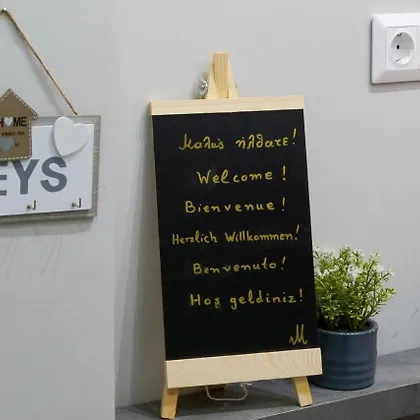 HOME
EYS
Καλώς ήλθατε!
Welcome!
Bienvenue!
Herzlich Willkommen!
Benvenuto!
Hoş geldiniz!
M